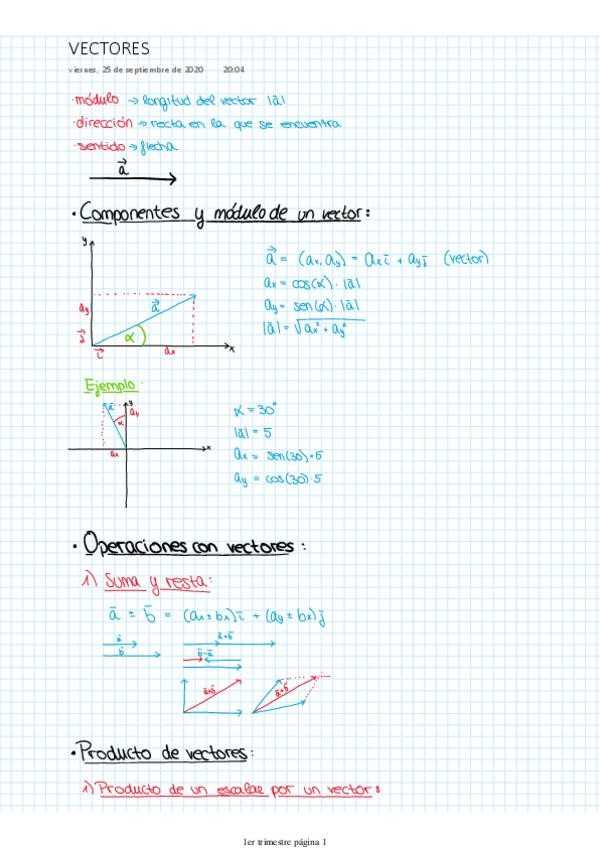 VECTORES
viernes, 25 de septiembre de 2020 20:04
·módulo → longitud del vector |ā|
·dirección → recta en la que se encuentra
·sentido → flecha
a⃗
· Componentes y módulo de un vector:
y
a⃗ = (ax, ay) = ax ī + ay j̄ (vector)
ax = cos(α) · |ā|
ay = sen(α) · |ā|
|ā| = √ax² + ay²
ay
a⃗
α
j⃗
i⃗
ax
x
Ejemplo
ā
y
ay
α
ax
x
α = 30°
|ā| = 5
ax = sen(30) · 5
ay = cos(30) · 5
· Operaciones con vectores:
1) Suma y resta:
ā ± b̄ = (ax ± bx) ī + (ay ± bx) j̄
ā
b̄
ā+b̄
b̄-ā
ā+b̄
ā+b̄
· Producto de vectores:
1) Producto de un escalar por un vector:
1er trimestre página 1